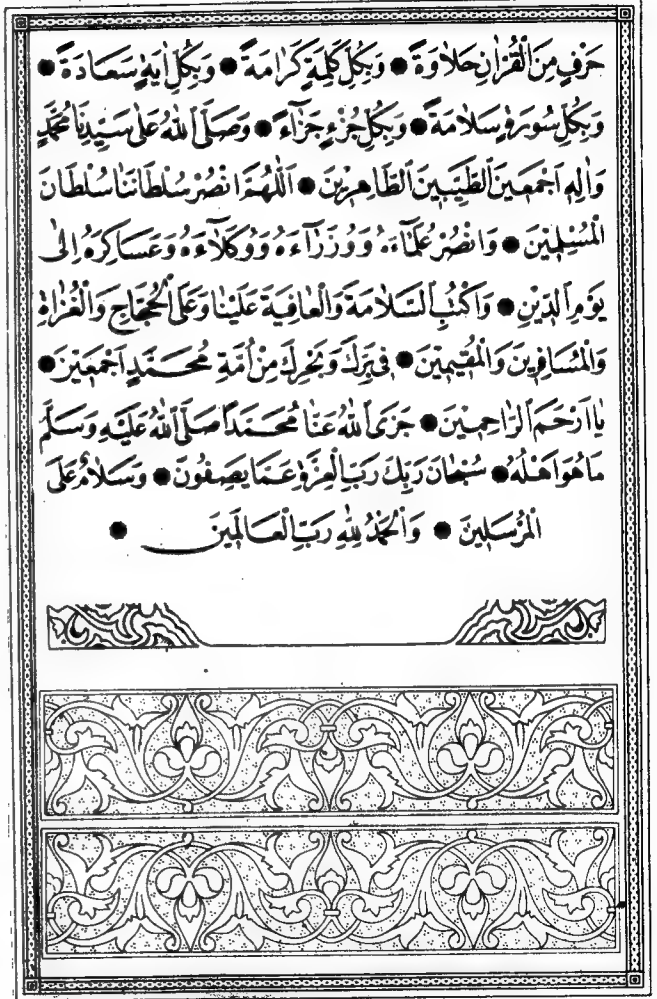 حَرْفٍ مِنَ الْقُرْاٰنِ حَلاٰوَةً ● وَبِكُلِّ كَلِمَةٍ كَرٰامَةً ● وَبِكُلِّ اٰيَةٍ سَعَادَةً ●
وَبِكُلِّ سُورَةٍ سَلاٰمَةً ● وَبِكُلِّ جُزْءٍ جَزٰٓاءً ● وَصَلَّى اللهُ عَلٰى سَيِّدِنَا مُحَمَّدٍ
وَاٰلِهِ اَجْمَعِينَ الطَّيِّبِينَ الطَّاهِرِينَ ● اَللّٰهُمَّ انْصُرْ سُلْطَانَنَا سُلْطَانَ
الْمُسْلِمِينَ ● وَانْصُرْ عُلَمَٓاءَهُ وَوُزَرَٓاءَهُ وَوُكَلَٓاءَهُ وَعَسَاكِرَهُ اِلٰى
يَوْمِ الدِّينِ ● وَاكْتُبِ السَّلاٰمَةَ وَالْعَافِيَةَ عَلَيْنَا وَعَلَى الْحُجَّاجِ وَالْغُزَاةِ
وَالْمُسَافِرِينَ وَالْمُقِيمِينَ ● فِى بَرِّكَ وَبَحْرِكَ مِنْ اُمَّةِ مُحَمَّدٍ اَجْمَعِينَ ●
يَا اَرْحَمَ الرَّاحِمِينَ ● جَزَى اللهُ عَنَّا مُحَمَّدًا صَلَّى اللهُ عَلَيْهِ وَسَلَّمَ
مَا هُوَ اَهْلُهُ ● سُبْحَانَ رَبِّكَ رَبِّ الْعِزَّةِ عَمَّا يَصِفُونَ ● وَسَلاٰمٌ عَلَى
الْمُرْسَلِينَ ● وَالْحَمْدُ لِلّٰهِ رَبِّ الْعَالَمِينَ ●